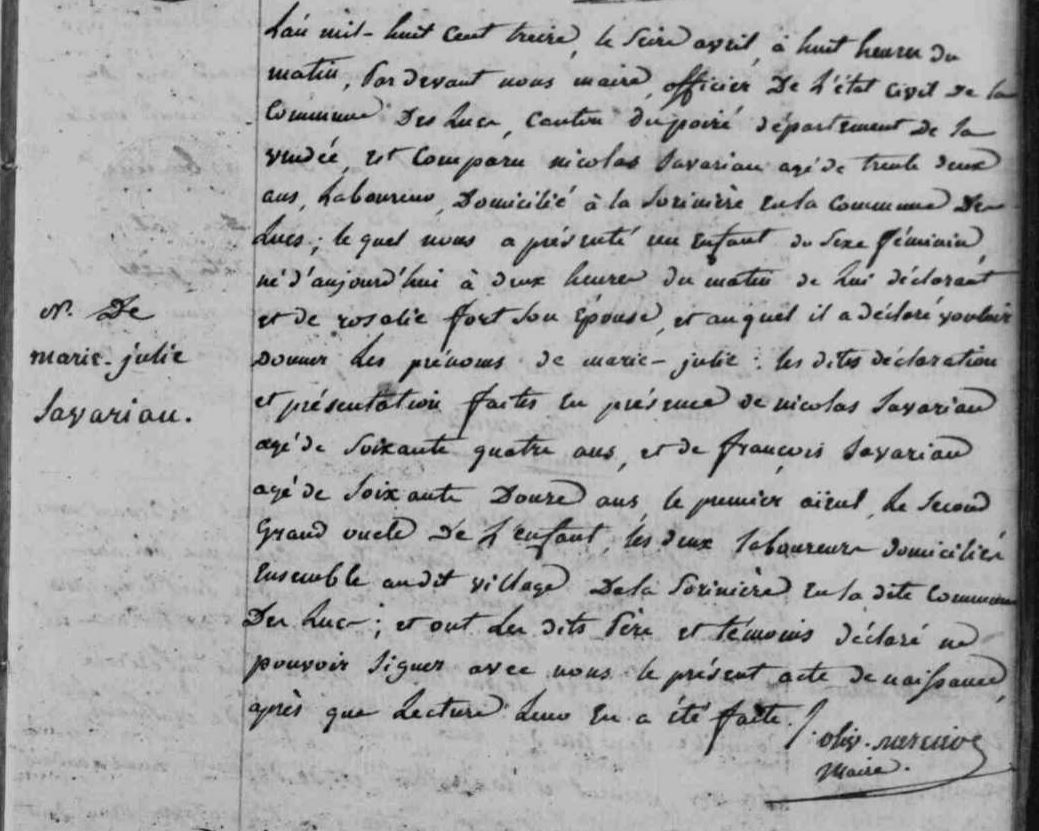 L'an mil-huit cent treize, le seize avril, à huit heures du
matin, Par devant nous maire, officier De L'état civil De la
Commune Des Lucs, canton du poiré département De la
vendée, est comparu nicolas Savariau agé de trente deux
ans, Laboureur, Domicilié à la Sorinière en la commune Des
Lucs; lequel nous a présenté un enfant du sexe féminin,
né d'aujourd'hui à deux heures du matin de lui déclarant
et de rosalie fort son épouse, et auquel il a déclaré vouloir
Donner les prénoms de marie-julie: les dites déclaration
N. De
marie-julie
Savariau.
et présentation faites en présence de nicolas Savariau
agé de soixante quatre ans, et de françois Savariau
agé de soixante Douze ans, le premier aïeul, le second
Grand oncle De L'enfant, les deux laboureurs domiciliés
Ensemble audit village De la Sorinière en la dite commune
Des Lucs; et ont les dits père et témoins déclaré ne
pouvoir signer avec nous le présent acte de naissance,
après que Lecture leur en a été faite./.
Maire.